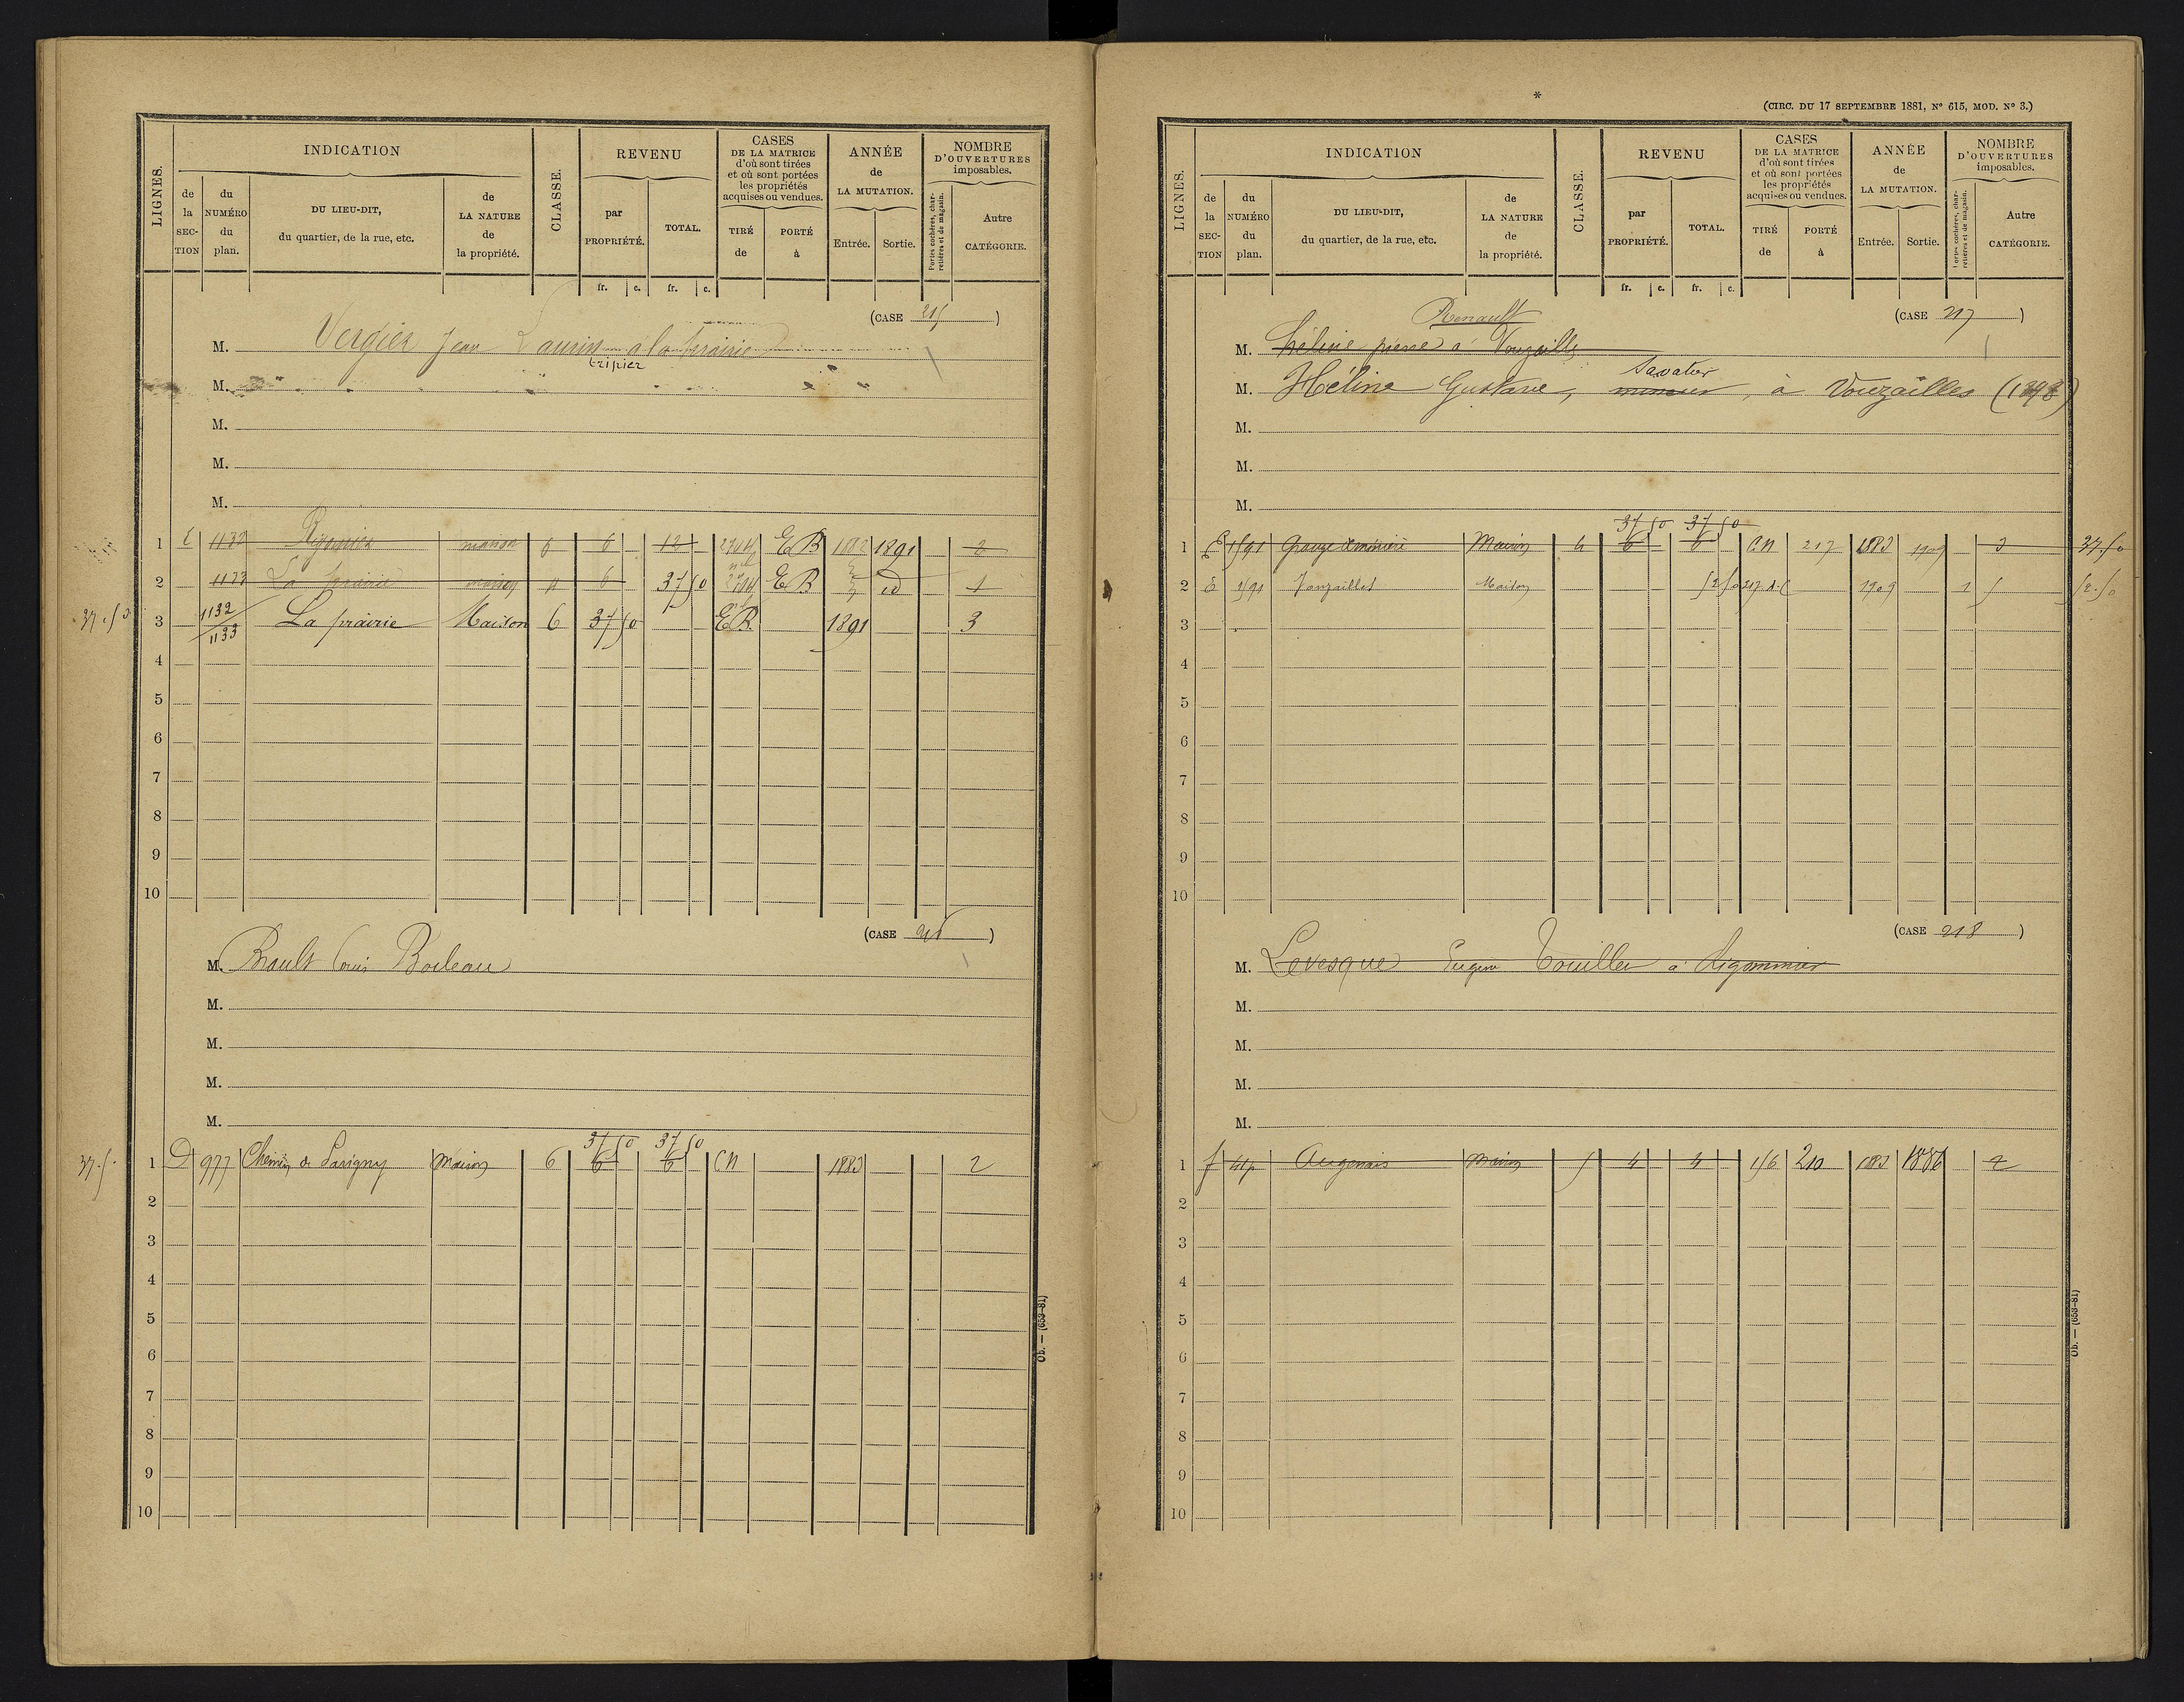 (CIRC. DU 17 SEPTEMBRE 1881, N° 615, MOD. N° 3.)
LIGNES.
INDICATION
de la SECTION
du NUMÉRO du plan.
DU LIEU-DIT, du quartier, de la rue, etc.
de LA NATURE de la propriété.
CLASSE.
REVENU
par PROPRIÉTÉ.
TOTAL.
CASES DE LA MATRICE d'où sont tirées et où sont portées les propriétés acquises ou vendues.
TIRÉ de
PORTÉ à
ANNÉE de LA MUTATION.
Entrée.
Sortie.
NOMBRE D'OUVERTURES imposables.
Portes cochères, charretières et de magasin.
Autre CATÉGORIE.
fr. c. fr. c.
(CASE 215)
M. Vergier Jean Laurin à la prairie
tripier
M.
M.
M.
M.
1 E 1132 maison 6 6 12 ER 1882 1891 2
2 1133 La prairie maison 6 37 50 ER id 1
3 1132/1133 La prairie Maison 6 37 50 ER 1891 3
4
5
6
7
8
9
10
(CASE 216)
M. Rault Louis Boileau
M.
M.
M.
M.
37 50 37 50
1 D 977 Chemin de Savigny maison 6 6 6 CN 1883 2
2
3
4
5
6
7
8
9
10
Ob. — (653-81)
LIGNES.
INDICATION
de la SECTION
du NUMÉRO du plan.
DU LIEU-DIT, du quartier, de la rue, etc.
de LA NATURE de la propriété.
CLASSE.
REVENU
par PROPRIÉTÉ.
TOTAL.
CASES DE LA MATRICE d'où sont tirées et où sont portées les propriétés acquises ou vendues.
TIRÉ de
PORTÉ à
ANNÉE de LA MUTATION.
Entrée.
Sortie.
NOMBRE D'OUVERTURES imposables.
Portes cochères, charretières et de magasin.
Autre CATÉGORIE.
fr. c. fr. c.
(CASE 217)
Renault
M. héline pierre à Vouzailles
Savatier
M. Héline Gustave, à Vouzailles (1898)
M.
M.
M.
37 50 37 50
1 E 1591 Maison 6 6 CN 217 1883 1909 3 37.50
2 E 1591 Vouzailles Maison 52 50 1909 1 5 52.50
3
4
5
6
7
8
9
10
(CASE 218)
M. Levesque Eugene Touillet à Ligommier
M.
M.
M.
M.
1 f Augenais maison 5 4 4 156 210 1883 1886 2
2
3
4
5
6
7
8
9
10
Ob. — (653-81)